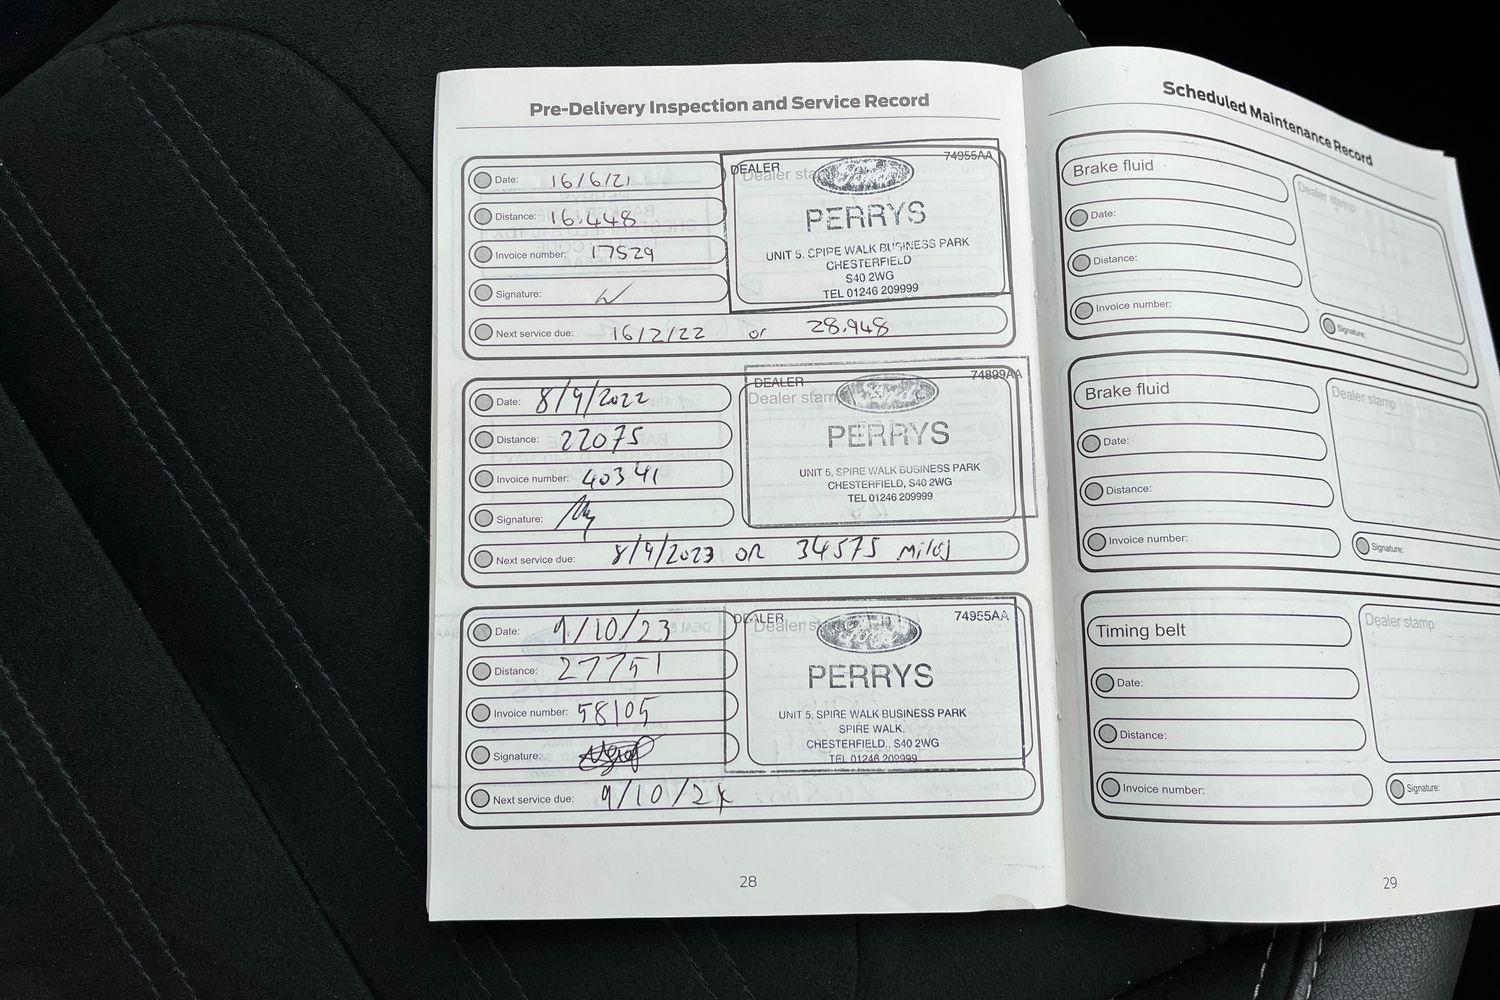 Pre-Delivery Inspection and Service Record
Date: 16/6/21
Distance: 16.448
Invoice number: 17529
Signature:
Next service due: 16/2/22 or 28.948
DEALER 74955AA
Dealer sta
PERRYS
UNIT 5, SPIRE WALK BUSINESS PARK
CHESTERFIELD
S40 2WG
TEL 01246 209999
Date: 8/9/2022
Distance: 22075
Invoice number: 40341
Signature:
Next service due: 8/9/2023 OR 34575 miles
DEALER 74899AA
Dealer stam
PERRYS
UNIT 5, SPIRE WALK BUSINESS PARK
CHESTERFIELD, S40 2WG
TEL 01246 209999
Date: 9/10/23
Distance: 27751
Invoice number: 58105
Signature:
Next service due: 9/10/24
DEALER 74955AA
Dealer s
PERRYS
UNIT 5, SPIRE WALK BUSINESS PARK
SPIRE WALK,
CHESTERFIELD,. S40 2WG
TEL 01246 209999
28
Scheduled Maintenance Record
Brake fluid
Dealer stamp
Date:
Distance:
Invoice number:
Signature:
Brake fluid
Dealer stamp
Date:
Distance:
Invoice number:
Signature:
Timing belt
Dealer stamp
Date:
Distance:
Invoice number:
Signature:
29